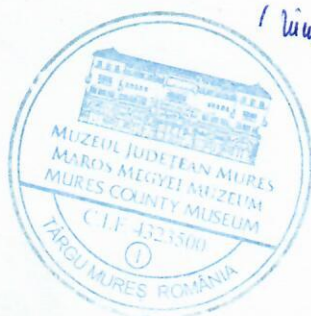 MUZEUL JUDEȚEAN MUREȘ
MAROS MEGYEI MÚZEUM
MURES COUNTY MUSEUM
C.I.F. 4323500
1
TÂRGU MUREȘ ROMÂNIA